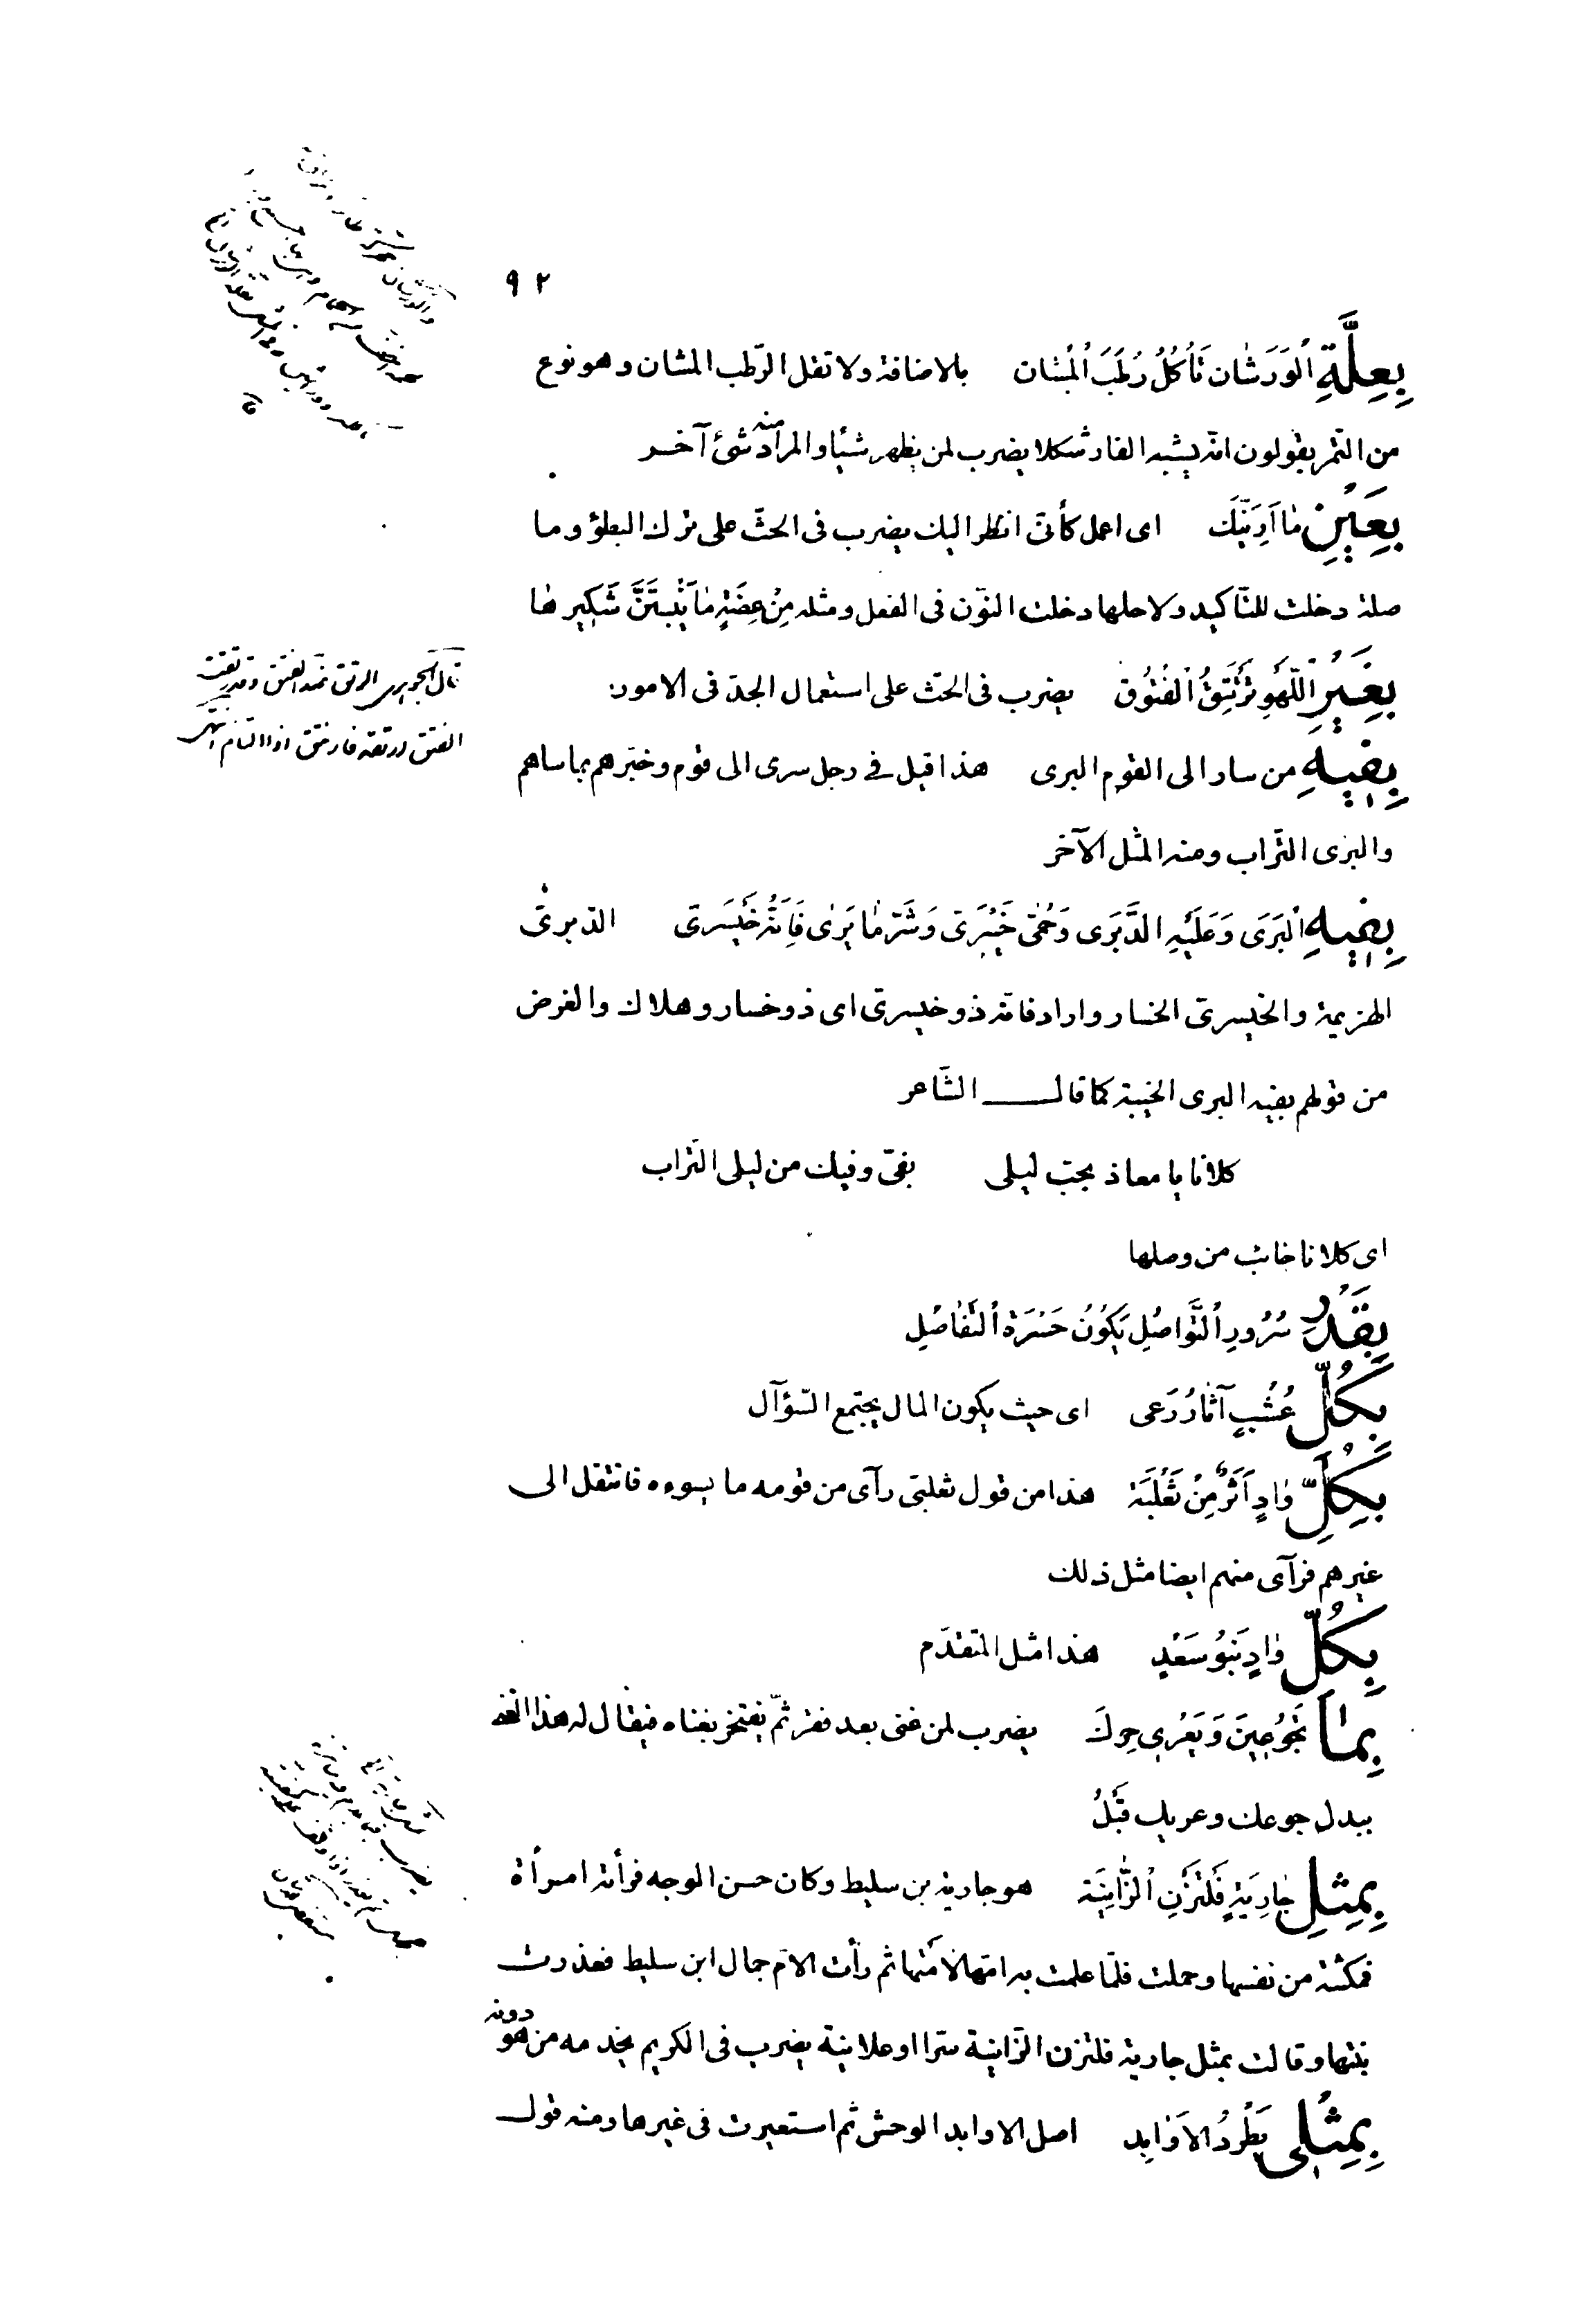 ٩٢
بِعِلَّةِ اَلْوَرَشٰانِ تَأْكُلُ رُطَبَ اَلْمُشٰان بالاضافة ولا تقل الرّطب المشان وهو نوع
من التّمر يقولون انّه يشبه الفار شكلا يضرب لمن يظهر شيئا والمراد منه شئ آخر
بِعَيْنٍ مٰا اَرَيَنَّكَ اى اعمل كأنّى انظر اليك يضرب فى الحثّ على ترك البطؤ وما
صلة دخلت للتّاكيد ولاجلها دخلت النّون فى الفعل ومثله مِنْ عِضَةٍ مٰا يَنْبُتَنَّ شَكِيرهٰا
بِغَيْرِ اللَّهْوِ تَرْتَتِقُ اَلْفُتُوق يضرب فى الحثّ على استعمال الجدّ فى الامور
قال الجوهرى الرتق ضد الفتق وقد رتقت
الفتق ارتقه فارتتق اى التأم انتهى
بِفِيهِ مِن سار الى القوم البرى هذا قيل فى رجل سرى الى قوم وخبّرهم بما ساهم
والبرى التّراب ومنه المثل الآخر
بِفِيهِ اَلْبَرَى وَعَلَيْهِ الدَّبَرَى وَحُمّٰى خَيْبَرَى وَشَرّ مٰا يَرٰى فَاِنَّهُ خَيْسَرَى الدّبرىٰ
الهزيمة والخيسرى الخسار واراد فانّه ذو خيسرى اى ذو خسار وهلاك والغرض
من قولهم بفيه البرى الخيبة كما قال الشّاعر
كلانا يا معاذ بحبّ ليلى بفىّ وفيك من ليلى التّراب
اى كلانا خائب من وصلها
بِقَدْرِ سُرُورِ اَلتَّوٰاصُلِ يَكُونُ حَسْرَة اَلتَّفٰاصُلِ
بِكُلِّ عُشْبٍ آثٰارُ رَعى اى حيث يكون المال يجتمع السّؤآل
بِكُلِّ وٰادٍ اَثَرٌ مِنْ ثَعْلَبَة هذا من قول ثعلبىّ رآى من قومه ما يسوءه فانتقل الى
غيرهم فرآى منهم ايضا مثل ذلك
بِكُلِّ وٰادٍ بَنُو سَعْدٍ هذا مثل المتقدّم
بِمٰا تَجُوعِينَ وَيَعْرٰى حِرك يضرب لمن غنى بعد فقر ثمّ يفتخر بغناه فيقال له هذا الغنى
ببدل جوعك وعريك قَبْلُ
بِمِثْلِ جٰارِيَةٍ فَلْتَزْنِ اَلزّٰانِيَة هو جارية بن سليط وكان حسن الوجه فرأته امرأة
فمكنته من نفسها وحملت فلمّا علمت به امّها لامتها ثم رأت الامّ جمال ابن سليط فعذرت
بنتها وقالت بمثل جارية فلتزن الزّانية سرّا او علانية يضرب فى الكريم يخدمه من هو دونه
بِمِثْلِى يُطْرَدُ الاَوٰابِد اصل الاوابد الوحش ثم استعيرت فى غيرها ومنه قول